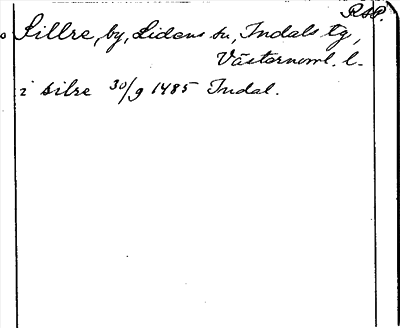 RAP.
Sillre, by, Lidens sn, Indals tg,
Västernorrl. l.
i silre 30/9 1485 Indal.